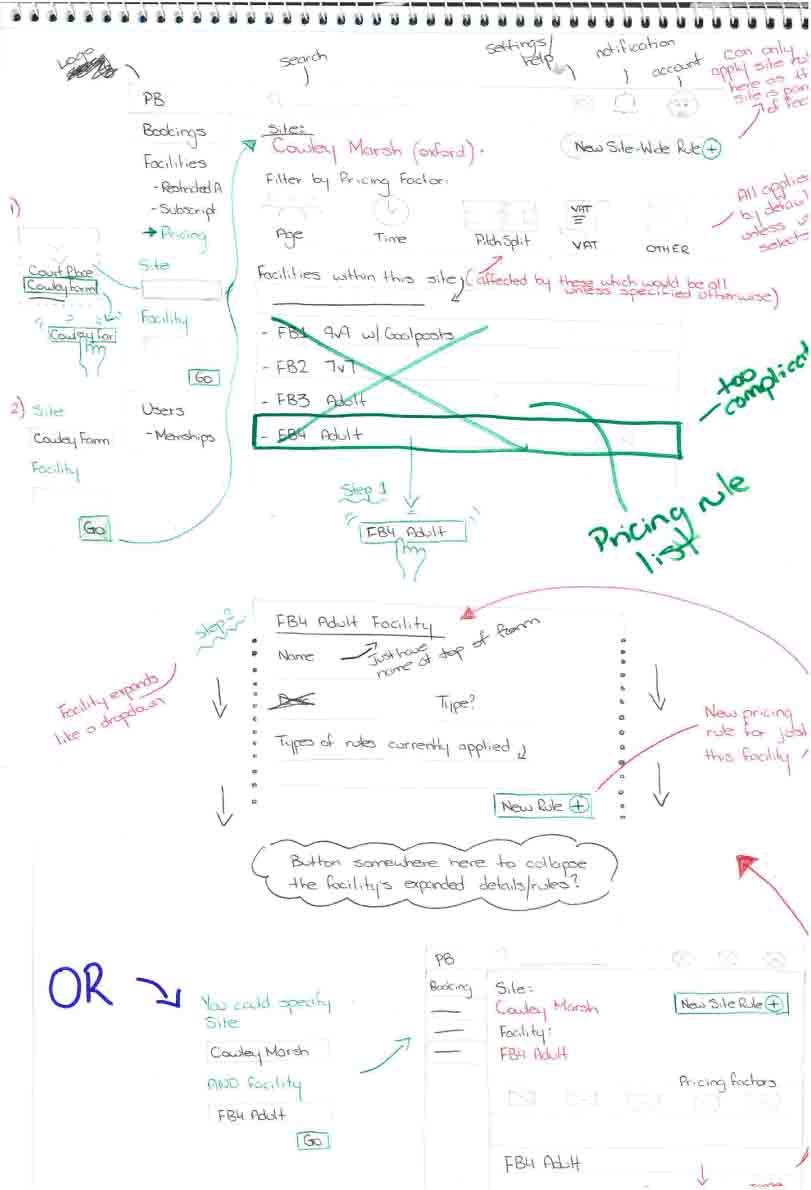 Logo
search
settings/
help
notification
account
can only
apply site
here as
site is
PB
Bookings
Facilities
- Restricted A
- Subscript
→ Pricing
Site
Facility
Go
Users
- Memships
Site:
Cowley Marsh (oxford).
New Site-Wide Rule +
Filter by Pricing Factor:
Age
Time
Pitch Split
VAT
VAT
OTHER
All applied
by default
unless
select
Facilities within this site, (affected by these which would be all
unless specified otherwise)
- FB1 9v9 w/Goalposts
- FB2 7v7
- FB3 Adult
- FB4 Adult
too
Pricing rule
list
1)
Court Place
Cowley Farm
Cowley Far
2) Site
Cowley Farm
Facility
Go
Step 1
FB4 Adult
Step 2
FB4 Adult Facility
Name
Just have
name at top of from
Type?
Types of rules currently applied
New Rule +
Facility expands
like a dropdown
New pricing
rule for just
this facility
Button somewhere here to collapse
the facility's expanded details/rules?
OR
You could specify
Site
Cowley Marsh
AND facility
FB4 Adult
Go
PB
Booking
Site:
Cowley Marsh
Facility:
FB4 Adult
New Site Rule +
Pricing factors
FB4 Adult